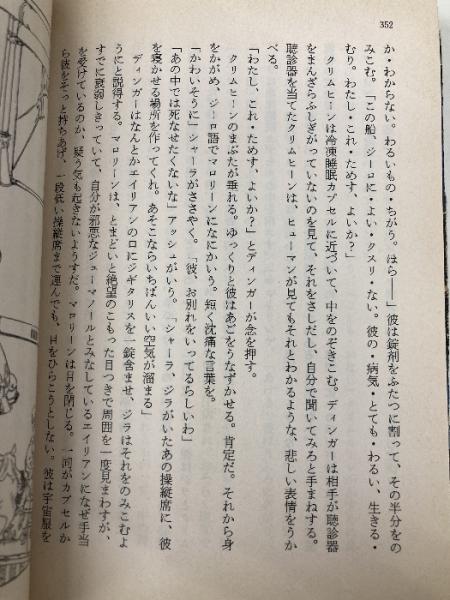 352
か・わからない。わるいもの・ちがう。ほら――」彼は錠剤をふたつに割って、その半分をの
みこむ。「この船、ジーロに・よい・クスリ・ない。彼の・病気・とても・わるい、生きる・
むり。わたし・これ・ためす、よいか？」
クリムヒーンは冷凍睡眠カプセルに近づいて、中をのぞきこむ。ディンガーは相手が聴診器
をまんざらふしぎがっていないのを見て、それをさしだし、自分で聞いてみろと手まねする。
聴診器を当てたクリムヒーンは、ヒューマンが見てもそれとわかるような、悲しい表情をうか
べる。
「わたし、これ・ためす、よいか？」とディンガーが念を押す。
クリムヒーンのまぶたが垂れる。ゆっくりと彼はあごをうなずかせる。肯定だ。それから身
をかがめ、ジーロ語でマロリーンになにかいう。短く沈痛な言葉を。
「かわいそうに」シャーラがささやく。「彼、お別れをいってるらしいわ」
「あの中では死なせたくないな」アッシュがいう。「シャーラ、ジラがいたあの操縦席に、彼
を寝かせる場所を作ってくれ。あそこならいちばんいい空気が溜まる」
ディンガーはなんとかエイリアンの口にジギタリスを一錠含ませ、ジラはそれをのみこむよ
うにと説得する。マロリーンは、とまどいと絶望のこもった目つきで周囲を一度見まわすが、
すでに衰弱しきっていて、自分が邪悪なジューマノールとみなしているエイリアンになぜ手当
を受けているのか、疑う気も起きないようすだ。マロリーンは目を閉じる。一同がカプセルか
ら彼をそっと持ちあげ、一段低い操縦席まで運んでも、目をひらこうとしない。彼は宇宙服を